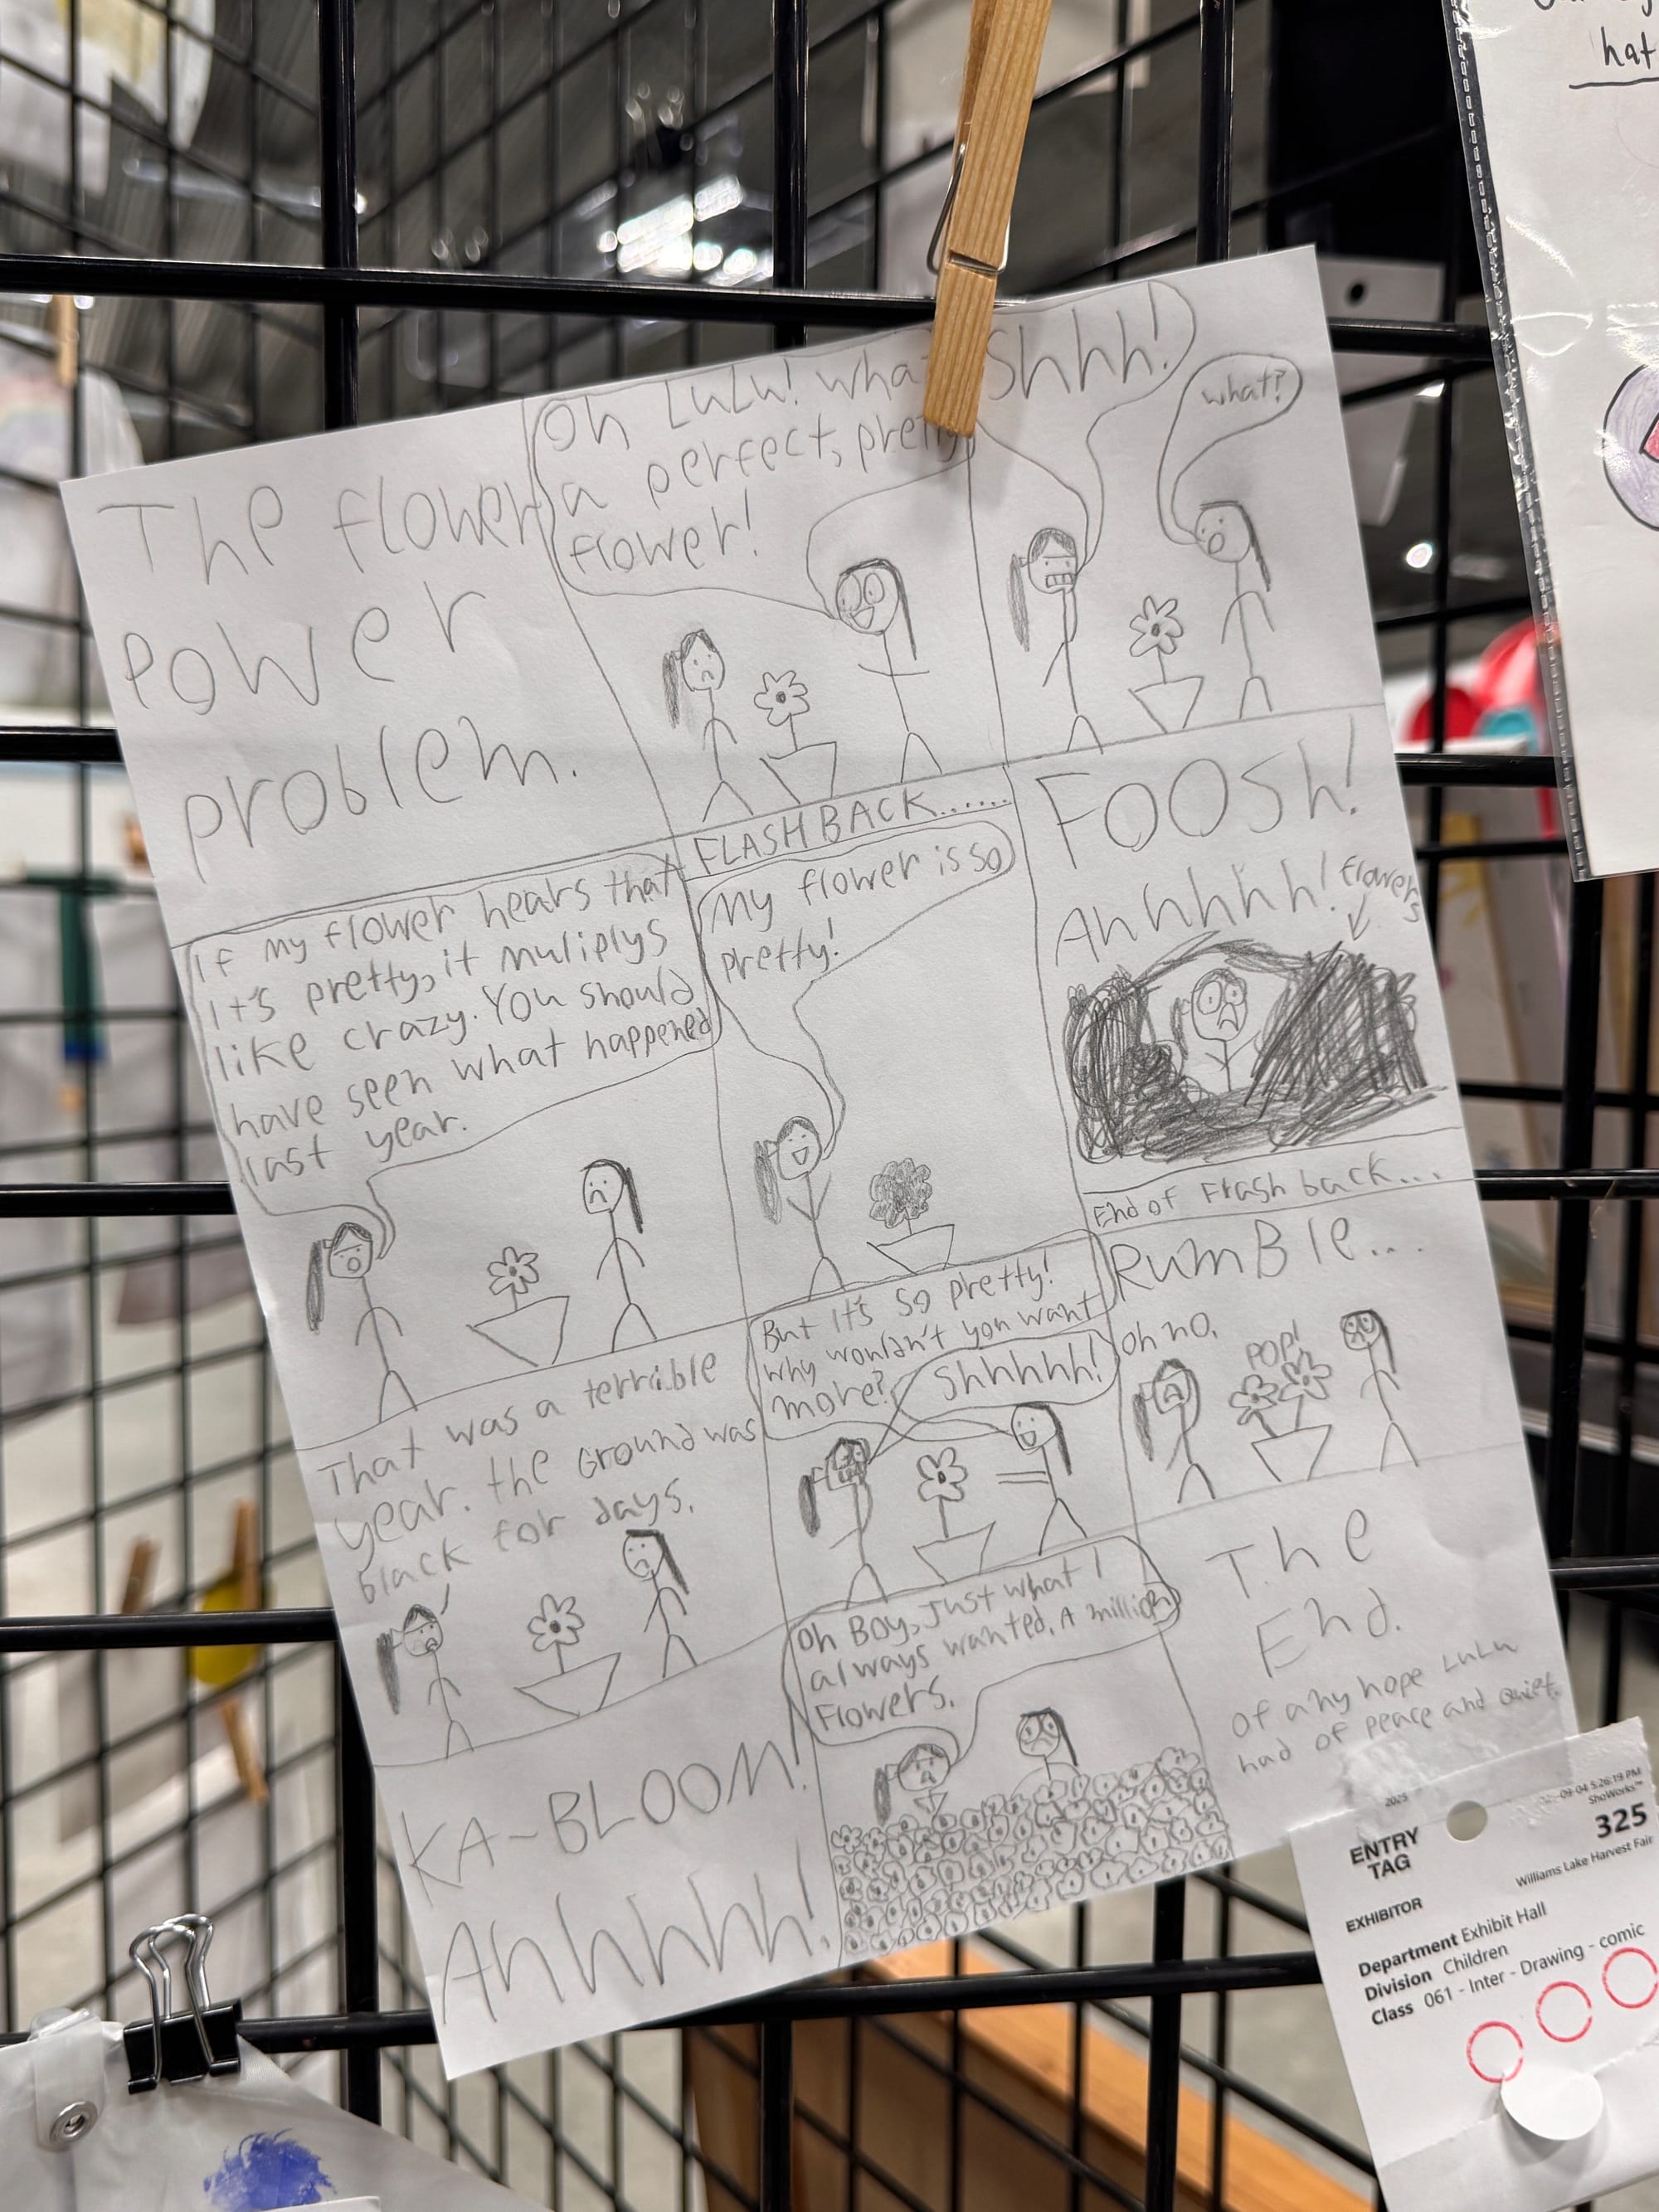 The flower
power
problem.
Oh LuLu! wha
a perfect, pretty
flower!
Shhh!
what?
If my flower hears that
it's pretty, it muliplys
like crazy. You should
have seen what happened
last year.
FLASH BACK......
My flower is so
pretty!
FOOSh!
Ahhhhh! flowers
End of Flash back...
That was a terrible
year. the Ground was
black for days.
But it's so pretty!
why wouldn't you want
more?
Shhhhh!
RumBle...
Oh no.
POP!
KA-BLOOM!
Ahhhhh!
Oh Boy, Just what I
always wanted. A million
Flowers.
The
End.
of any hope LuLu
had of peace and quiet.
hat
2025
-09-04 5:26:19 PM
ShoWorks™
ENTRY
TAG
325
Williams Lake Harvest Fair
EXHIBITOR
Department Exhibit Hall
Division Children
Class 061 - Inter - Drawing - comic